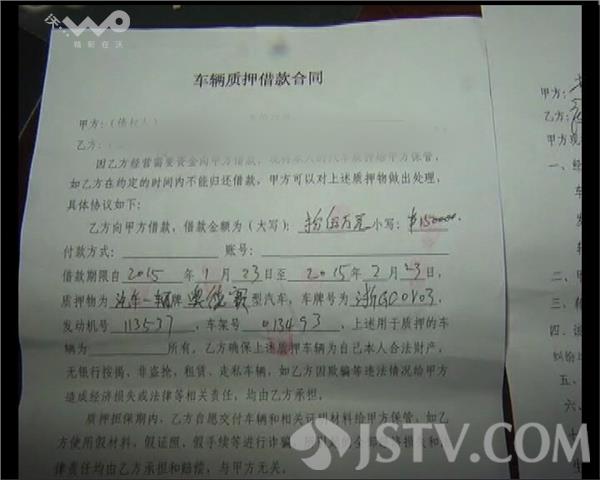 WO
精彩在沃
车辆质押借款合同
甲方：（债权人）
乙方：
因乙方经营需要资金向甲方借款，现将本人的汽车质押给甲方保管，
如乙方在约定的时间内不能归还借款，甲方可以对上述质押物做出处理，
具体协议如下：
乙方向甲方借款，借款金额为（大写）：拾伍万元 小写：¥150000
付款方式： 账号：
借款期限自 2015 年 1 月 23 日至 2015 年 2 月 23 日，
质押物为 汽车一辆 牌 奥德赛 型汽车，车牌号为
发动机号 113537 ，车架号 013493 ，上述用于质押的车
辆为 所有，乙方确保上述质押车辆为自己本人合法财产，
无银行按揭、非盗抢，租赁、走私车辆，如乙方因欺骗等违法情况给甲方
造成经济损失或法律等相关责任，均由乙方承担。
质押担保期内，乙方自愿交付车辆和相关证明材料给甲方保管，如乙
方使用假材料，假证照，假手续等进行诈骗，
律责任均由乙方承担和赔偿，与甲方无关。
甲方：
乙方：
甲方现
一、经
车
发
辆
二、
三、
四、
纠纷
五、
六、
七
JSTV.COM